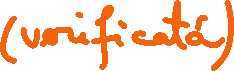 (verificată)